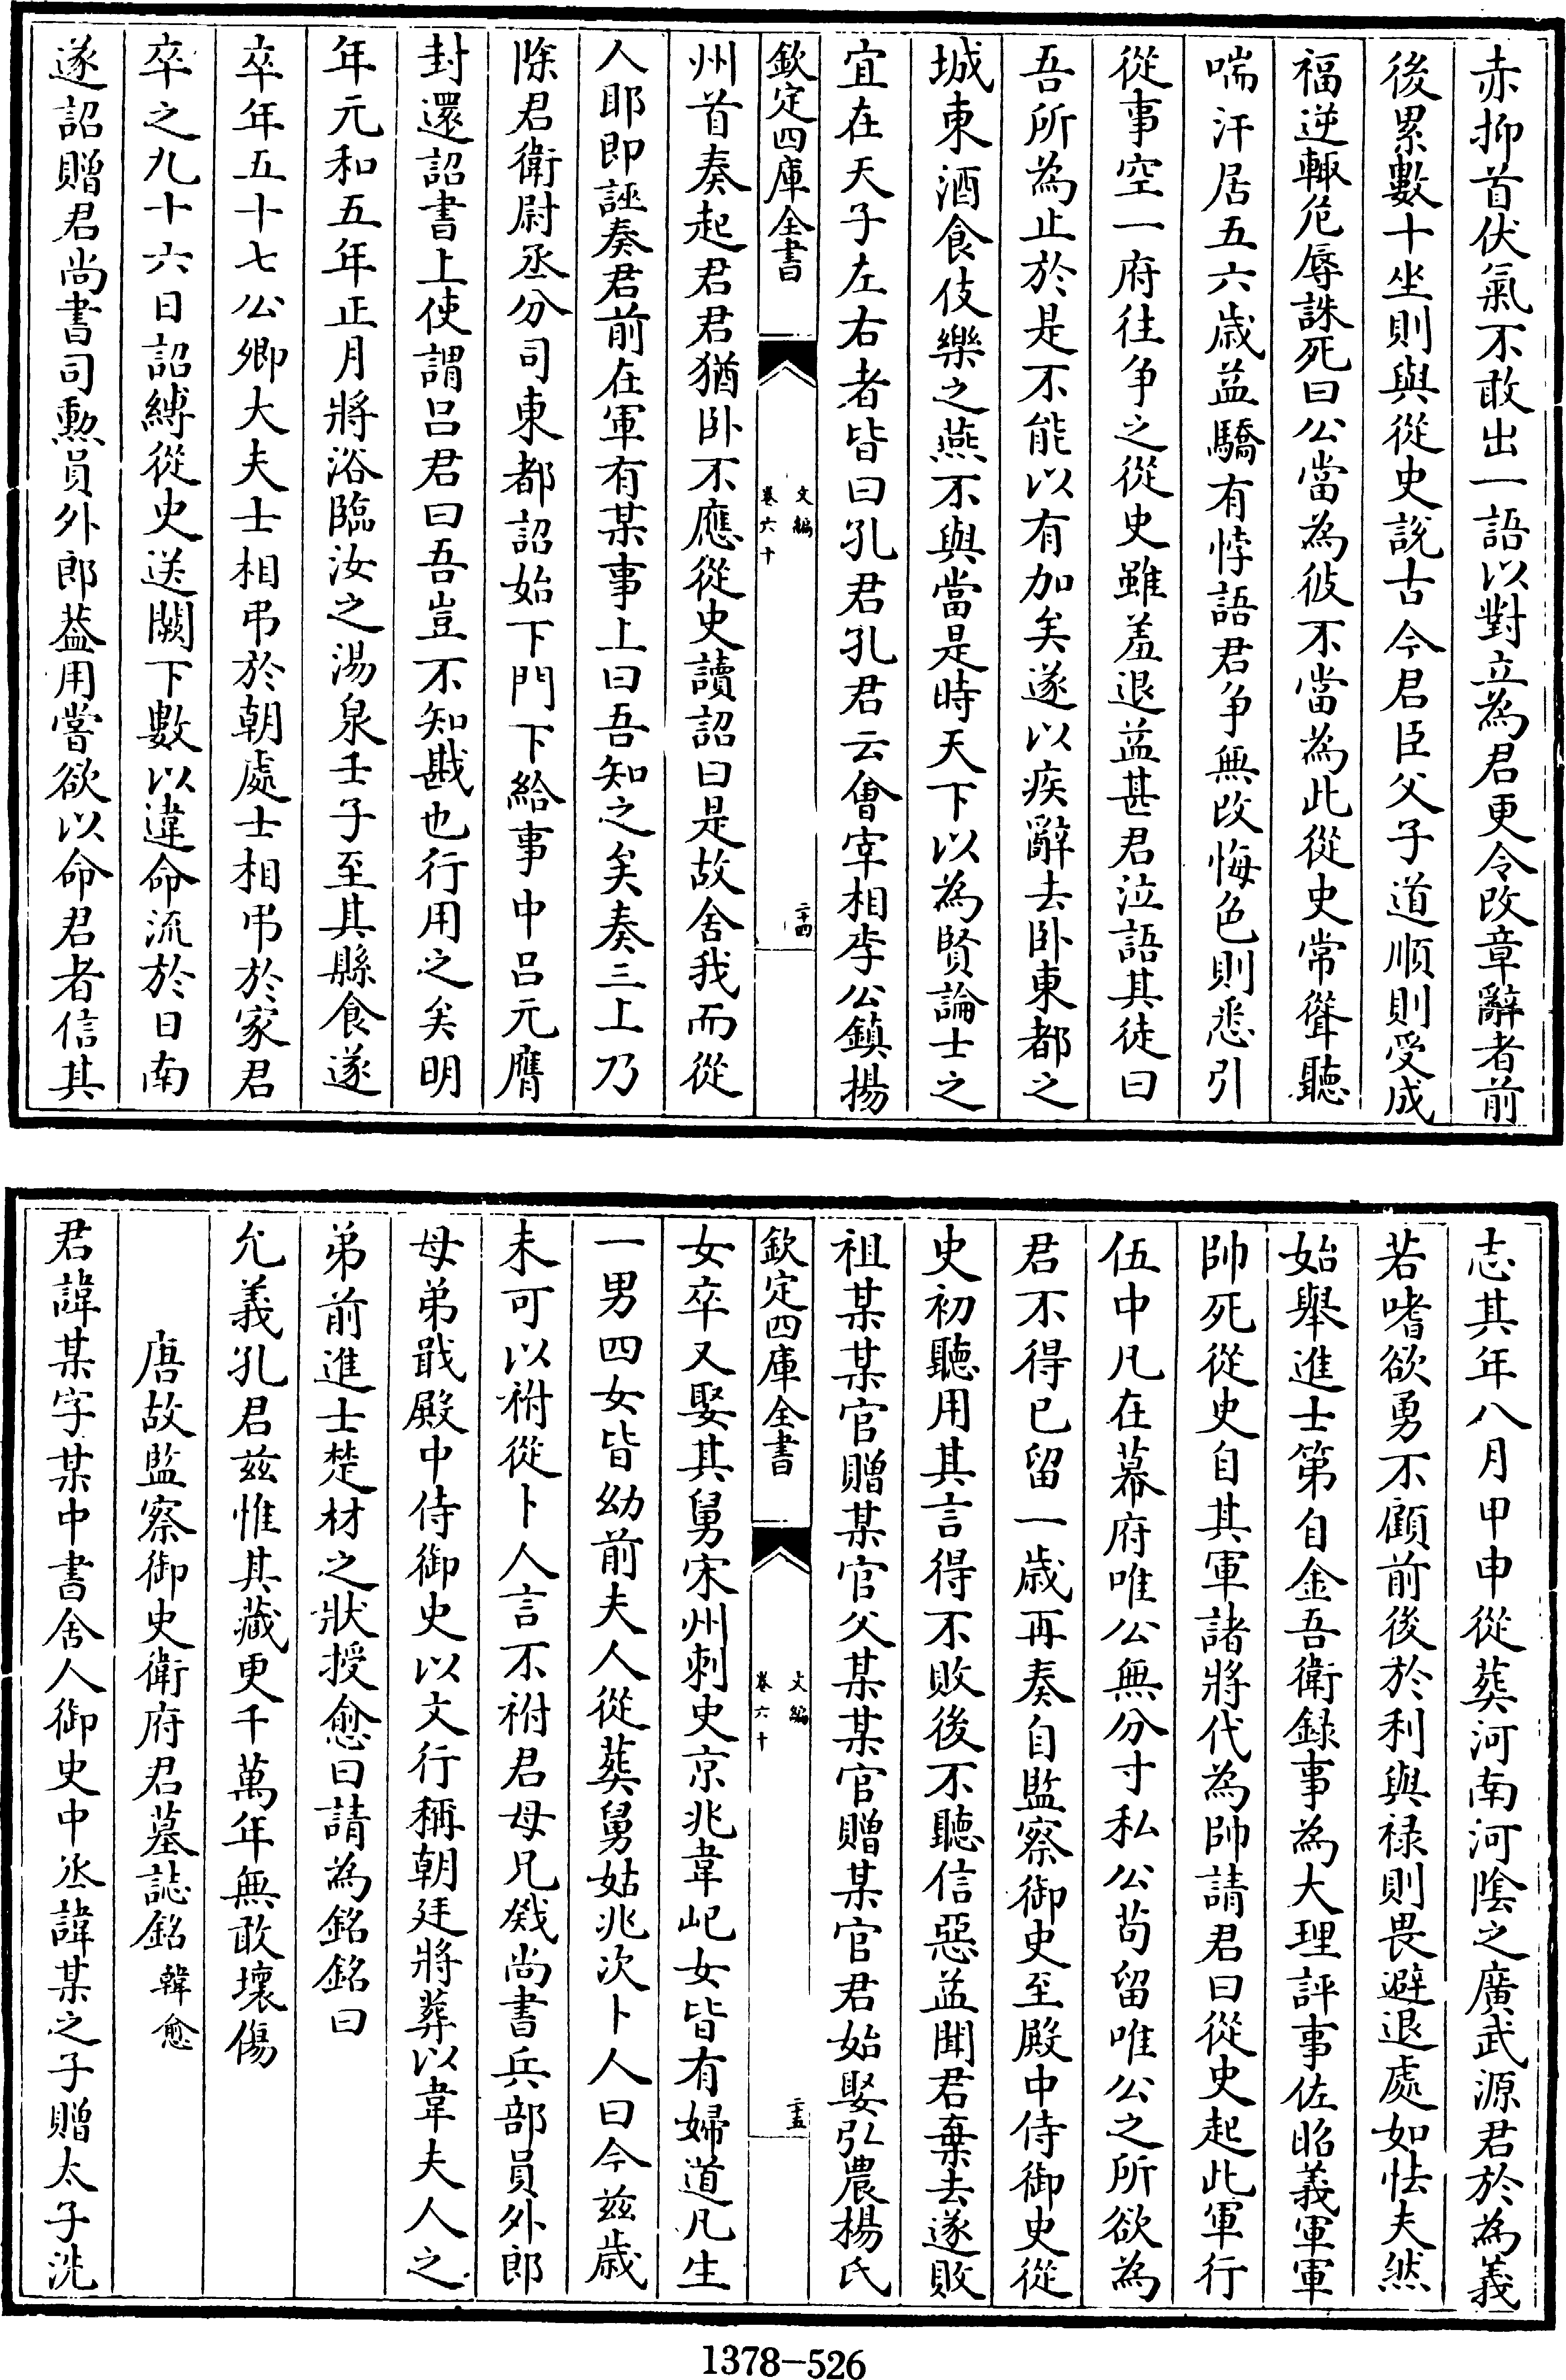 赤抑首伏氣不敢出一語以對立為君更令改章辭者前
後累數十坐則與從史説古今君臣父子道順則受成
福逆輒危辱誅死曰公當為彼不當為此從史常聳聽
喘汗居五六歳益驕有悖語君争無改悔色則悉引
從事空一府往争之從史雖羞退益甚君泣語其徒曰
吾所為止於是不能以有加矣遂以疾辭去卧東都之
城東酒食伎樂之燕不與當是時天下以為賢論士之
宜在天子左右者皆曰孔君孔君云㑹宰相李公鎮揚
欽定四庫全書
文編
卷六十
二十四
州首奏起君君猶卧不應從史讀詔曰是故舍我而從
人耶即誣奏君前在軍有某事上曰吾知之矣奏三上乃
除君衛尉丞分司東都詔始下門下給事中吕元膺
封還詔書上使謂吕君曰吾豈不知戡也行用之矣明
年元和五年正月將浴臨汝之湯泉壬子至其縣食遂
卒年五十七公卿大夫士相弔於朝處士相弔於家君
卒之九十六日詔縛從史送闕下數以違命流於日南
遂詔贈君尚書司勲員外郎葢用嘗欲以命君者信其
志其年八月甲申從葬河南河隂之廣武源君於為義
若嗜欲勇不顧前後於利與禄則畏避退處如怯夫然
始舉進士第自金吾衛録事為大理評事佐昭義軍軍
帥死從史自其軍諸將代為帥請君曰從史起此軍行
伍中凡在幕府唯公無分寸私公苟留唯公之所欲為
君不得已留一歳再奏自監察御史至殿中侍御史從
史初聽用其言得不敗後不聽信惡益聞君棄去遂敗
祖某某官贈某官父某某官贈某官君始娶弘農楊氏
欽定四庫全書
文編
卷六十
二十五
女卒又娶其舅宋州刺史京兆韋屺女皆有婦道凡生
一男四女皆幼前夫人從葬舅姑兆次卜人曰今兹歳
未可以祔從卜人言不祔君母兄戣尚書兵部員外郎
母弟戢殿中侍御史以文行稱朝廷將葬以韋夫人之
弟前進士楚材之狀授愈曰請為銘銘曰
允義孔君兹惟其藏更千萬年無敢壞傷
唐故監察御史衛府君墓誌銘 韓愈
君諱某字某中書舍人御史中丞諱某之子贈太子洗
1378-526